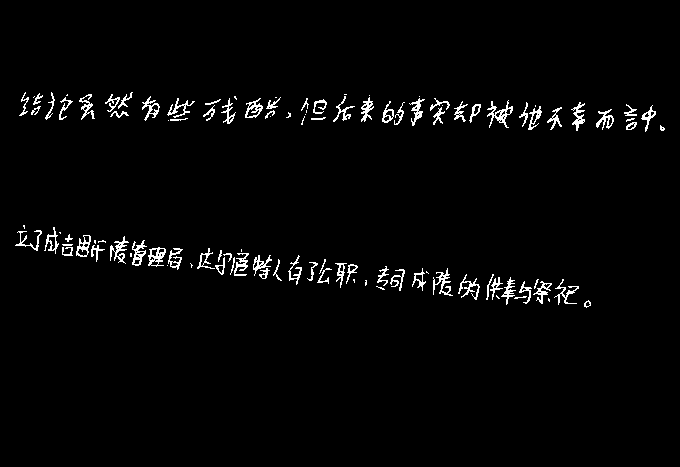 结论虽然有些残酷，但后来的事实却被他不幸而言中。
立了成吉思汗陵管理局、达尔扈特人有了公职，专司成陵的供奉与祭祀。